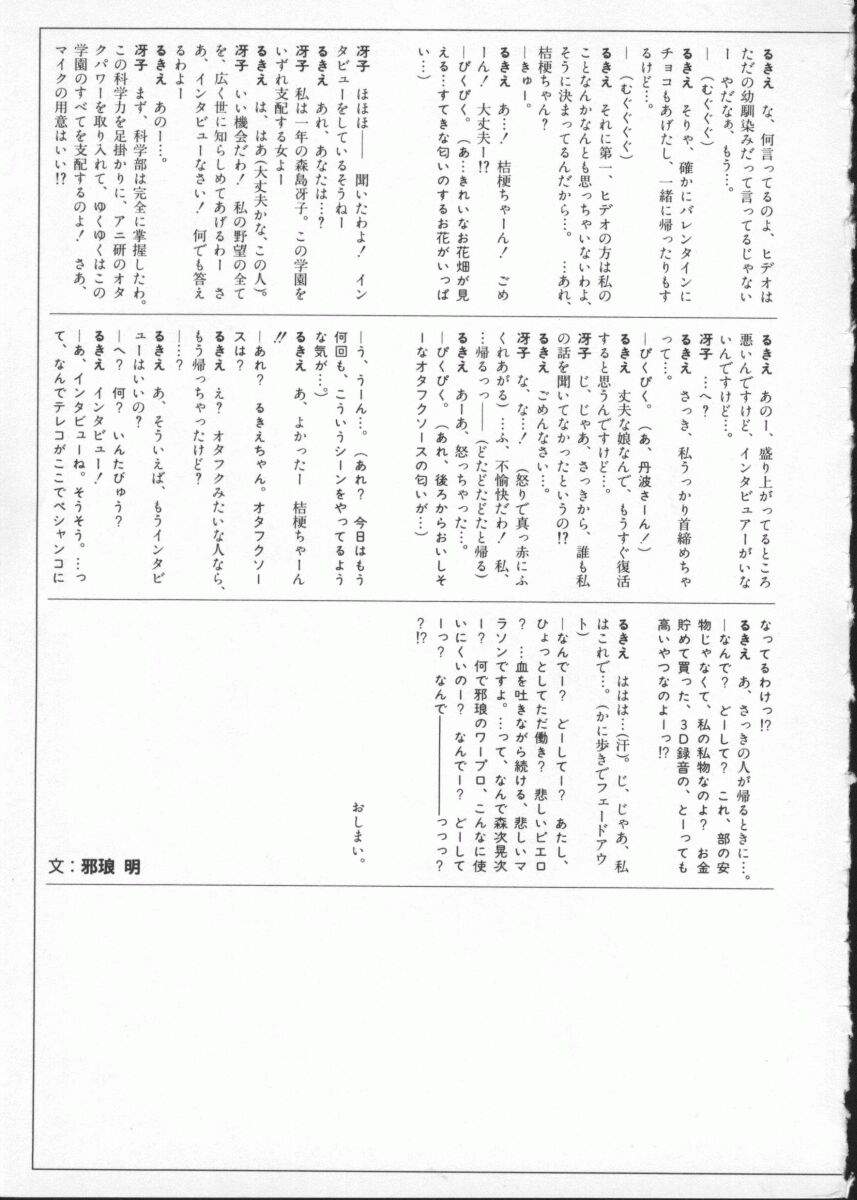 るきえ　な、何言ってるのよ、ヒデオは
ただの幼馴染みだって言ってるじゃない
ー　やだなぁ、もう…。
―（むぐぐぐ）
るきえ　そりゃ、確かにバレンタインに
チョコもあげたし、一緒に帰ったりもす
るけど…。
―（むぐぐぐぐ）
るきえ　それに第一、ヒデオの方は私の
ことなんかなんとも思っちゃいないわよ、
そうに決まってるんだから…。　…あれ、
桔梗ちゃん？
―きゅー。
るきえ　あ…！　桔梗ちゃーん！　ごめ
ーん！　大丈夫ー!?
―ぴくぴく。（あ…きれいなお花畑が見
える…すてきな匂いのするお花がいっぱ
い…）
冴子　ほほほ――　聞いたわよ！　イン
タビューをしているそうねー
るきえ　あれ、あなたは…？
冴子　私は一年の森島冴子。この学園を
いずれ支配する女よー
るきえ　は、はあ（大丈夫かな、この人）。
冴子　いい機会だわ！　私の野望の全て
を、広く世に知らしめてあげるわー　さ
あ、インタビューなさい！　何でも答え
るわよー
るきえ　あのー…。
冴子　まず、科学部は完全に掌握したわ。
この科学力を足掛かりに、アニ研のオタ
クパワーを取り入れて、ゆくゆくはこの
学園のすべてを支配するのよ！　さあ、
マイクの用意はいい!?
るきえ　あのー、盛り上がってるところ
悪いんですけど、インタビュアーがいな
いんですけど…。
冴子　…へ？
るきえ　さっき、私うっかり首締めちゃ
って…。
―ぴくぴく。（あ、丹波さーん！）
るきえ　丈夫な娘なんで、もうすぐ復活
すると思うんですけど…。
冴子　じ、じゃあ、さっきから、誰も私
の話を聞いてなかったというの!?
るきえ　ごめんなさい…。
冴子　な、な…！　（怒りで真っ赤にふ
くれあがる）…ふ、不愉快だわ！　私、
…帰るっっ――（どたどたどたと帰る）
るきえ　あーあ、怒っちゃった…。
―ぴくぴく。（あれ、後ろからおいしそ
ーなオタフクソースの匂いが…）
―う、うーん…。（あれ？　今日はもう
何回も、こういうシーンをやってるよう
な気が…。）
るきえ　あ、よかったー　桔梗ちゃーん
!!
―あれ？　るきえちゃん。オタフクソー
スは？
るきえ　え？　オタフクみたいな人なら、
もう帰っちゃったけど？
―…？
るきえ　あ、そういえば、もうインタビ
ューはいいの？
―へ？　何？　いんたびゅう？
るきえ　インタビュー！
―あ、インタビューね。そうそう。…っ
て、なんでテレコがここでペシャンコに
なってるわけっ!?
るきえ　あ、さっきの人が帰るときに…。
―なんで？　どーして？　これ、部の安
物じゃなくて、私の私物なのよ？　お金
貯めて買った、３Ｄ録音の、とーっても
高いやつなのよーっ!?
るきえ　ははは…（汗）。じ、じゃあ、私
はこれで…。（かに歩きでフェードアウ
ト）
―なんでー？　どーしてー？　あたし、
ひょっとしてただ働き？　悲しいピエロ
？　…血を吐きながら続ける、悲しいマ
ラソンですよ。…って、なんで森次晃次
ー？　何で邪琅のワープロ、こんなに使
いにくいのー？　なんでー？　どーして
ーっ？　なんで――――――っっっ？
?!?
おしまい。
文：邪琅 明